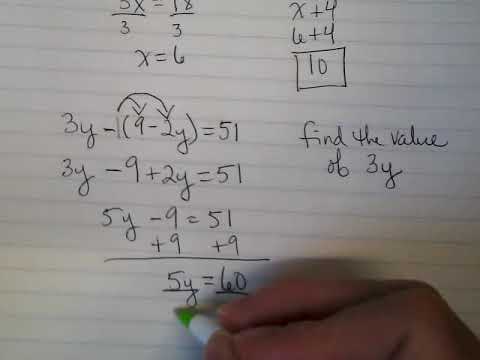 3x = 18
3 3
x = 6
x + 4
6 + 4
10
3y - 1(9 - 2y) = 51
3y - 9 + 2y = 51
5y - 9 = 51
+9 +9
5y = 60
find the value
of 3y